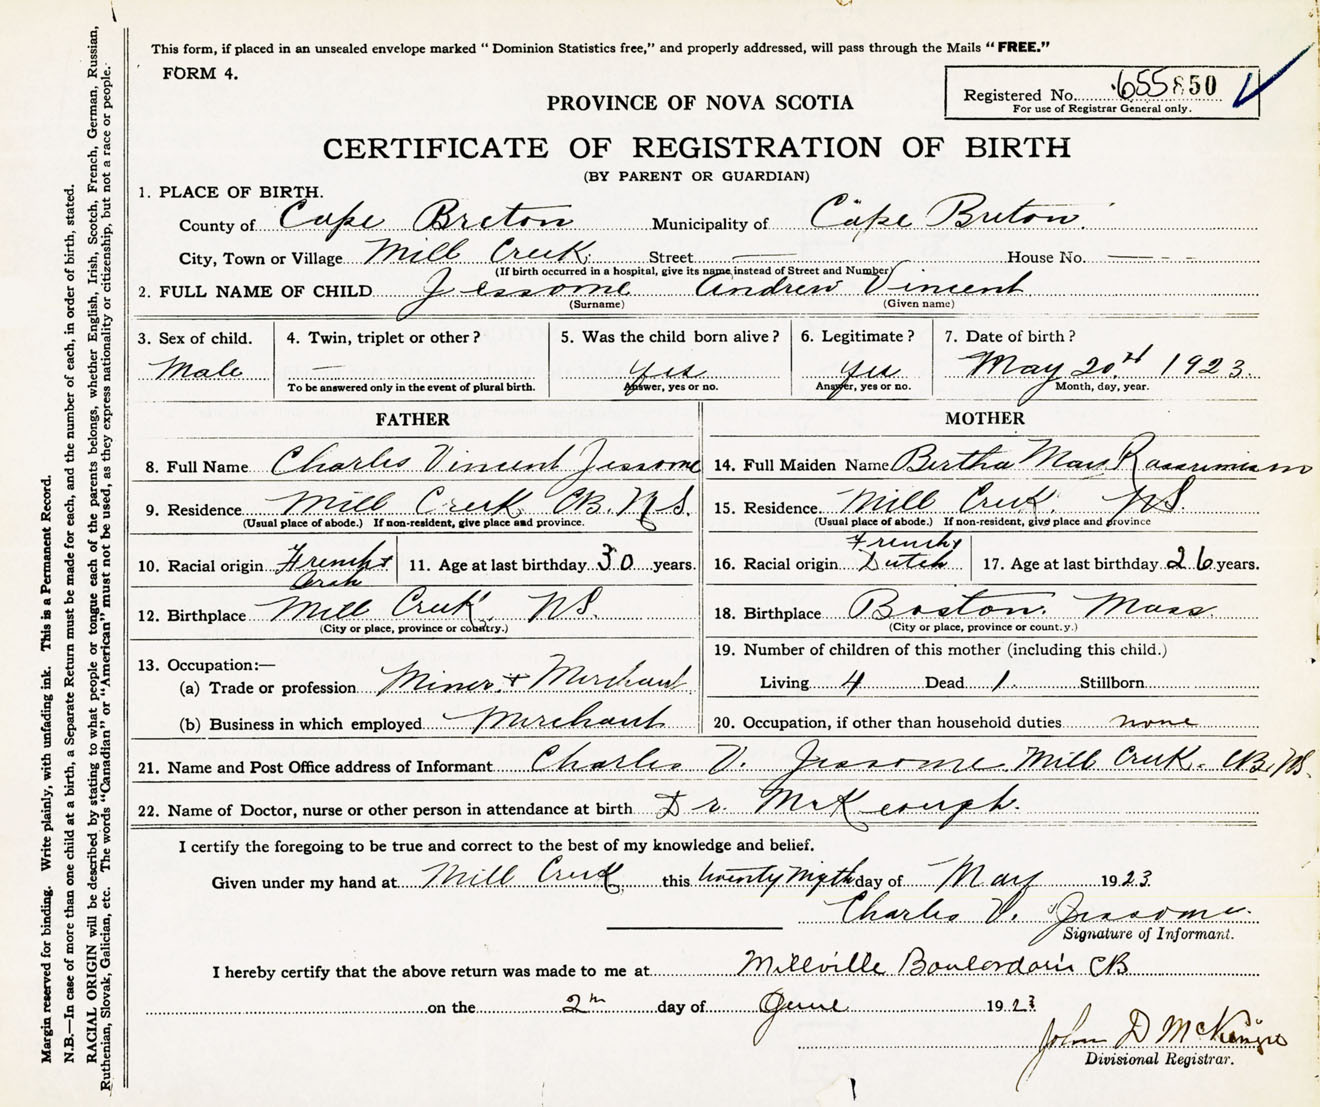 This form, if placed in an unsealed envelope marked "Dominion Statistics free," and properly addressed, will pass through the Mails "FREE."
FORM 4.
Registered No. 655850
For use of Registrar General only.
PROVINCE OF NOVA SCOTIA
CERTIFICATE OF REGISTRATION OF BIRTH
(BY PARENT OR GUARDIAN)
1. PLACE OF BIRTH.
County of Cape Breton Municipality of Cape Breton.
City, Town or Village Mill Creek. Street — House No. — - - -
(If birth occurred in a hospital, give its name instead of Street and Number)
2. FULL NAME OF CHILD Jessome Andrew Vincent
(Surname) (Given name)
3. Sex of child. 4. Twin, triplet or other? 5. Was the child born alive? 6. Legitimate? 7. Date of birth?
Male — yes yes May 20th 1923.
To be answered only in the event of plural birth. Answer, yes or no. Answer, yes or no. Month, day, year.
FATHER
8. Full Name Charles Vincent Jessome
9. Residence Mill Creek CB. NS.
(Usual place of abode.) If non-resident, give place and province.
10. Racial origin French + 11. Age at last birthday 30 years.
12. Birthplace Mill Creek. NS.
(City or place, province or country.)
13. Occupation:—
(a) Trade or profession Miner + Merchant
(b) Business in which employed Merchant
MOTHER
14. Full Maiden Name Bertha May
15. Residence. Mill Creek. NS.
(Usual place of abode.) If non-resident, give place and province
French +
16. Racial origin Dutch 17. Age at last birthday 26 years.
18. Birthplace Boston. Mass.
(City or place, province or county.)
19. Number of children of this mother (including this child.)
Living 4 Dead 1. Stillborn
20. Occupation, if other than household duties none
21. Name and Post Office address of Informant Charles V. Jessome. Mill Creek. CB. NS.
22. Name of Doctor, nurse or other person in attendance at birth Dr. McKeough.
I certify the foregoing to be true and correct to the best of my knowledge and belief.
Given under my hand at Mill Creek this twenty day of May 1923.
Charles V. Jessome.
Signature of Informant.
I hereby certify that the above return was made to me at Millville Boulardarie CB
on the 2nd day of June 1923
John D McKenzie
Divisional Registrar.
Margin reserved for binding. Write plainly, with unfading ink. This is a Permanent Record.
N.B.—In case of more than one child at a birth, a Separate Return must be made for each, and the number of each, in order of birth, stated.
RACIAL ORIGIN will be described by stating to what people or tongue each of the parents belongs, whether English, Irish, Scotch, French, German, Russian,
Ruthenian, Slovak, Galician, etc. The words "Canadian" or "American" must not be used, as they express nationality or citizenship, but not a race or people.